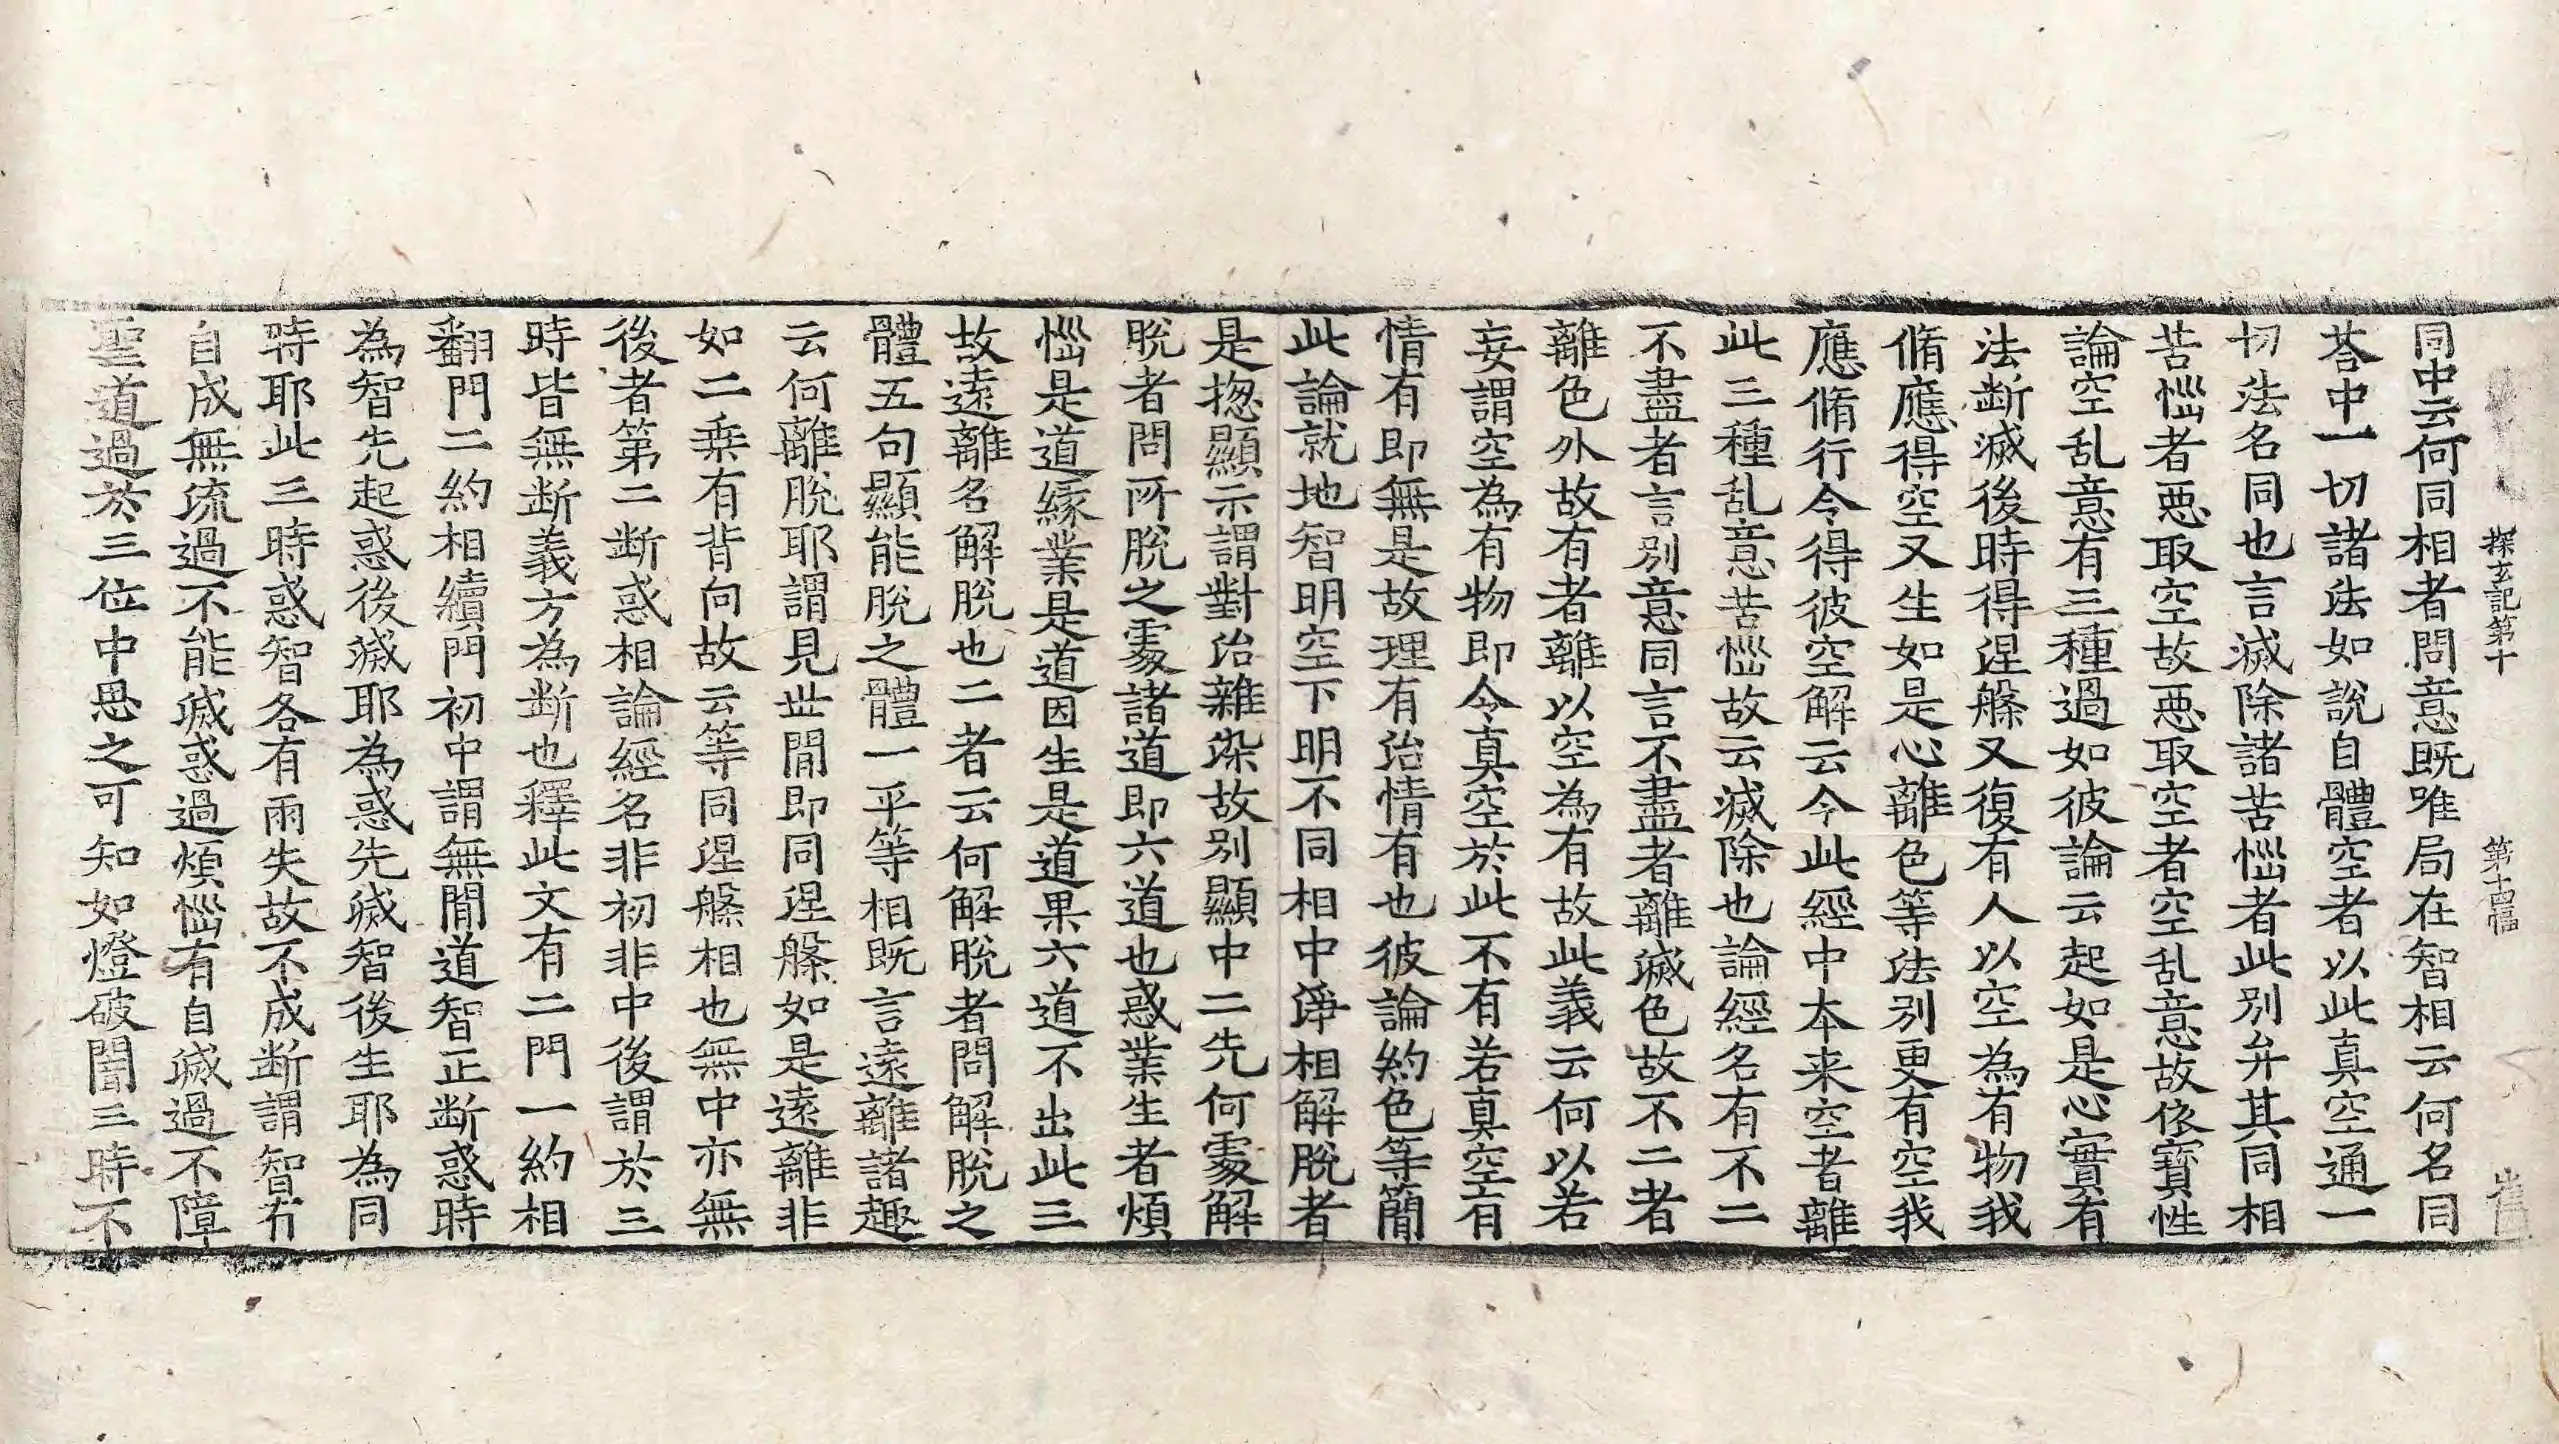 探玄記第十 第十四幅 崔
同中云何同相者問意既唯局在智相云何名同
荅中一切諸法如說自體空者以此真空通一
切法名同也言滅除諸苦惱者此別弁其同相
苦惱者惡取空故惡取空者空乱意故依寶性
論空乱意有三種過如彼論云起如是心實有
法断滅後時得涅槃又復有人以空為有物我
脩應得空又生如是心離色等法別更有空我
應脩行令得彼空解云今此經中本来空者離
此三種乱意苦惱故云滅除也論經名有不二
不盡者言別意同言不盡者離滅色故不二者
離色外故有者離以空為有故此義云何以若
妄謂空為有物即令真空於此不有若真空有
情有即無是故理有治情有也彼論約色等簡
此論就地智明空下明不同相中諍相解脫者
是揔顯示謂對治雜染故別顯中二先何處解
脫者問所脫之處諸道即六道也惑業生者煩
惱是道緣業是道因生是道果六道不出此三
故遠離名解脫也二者云何解脫者問解脫之
體五句顯能脫之體一平等相既言遠離諸趣
云何離脫耶謂見世間即同涅槃如是遠離非
如二乘有背向故云等同涅槃相也無中亦無
後者第二断惑相論經名非初非中後謂於三
時皆無断義方為断也釋此文有二門一約相
翻門二約相續門初中謂無間道智正断惑時
為智先起惑後滅耶為惑先滅智後生耶為同
時耶此三時惑智各有兩失故不成断謂智有
自成無流過不能滅惑過煩惱有自滅過不障
聖道過於三位中思之可知如燈破闇三時不